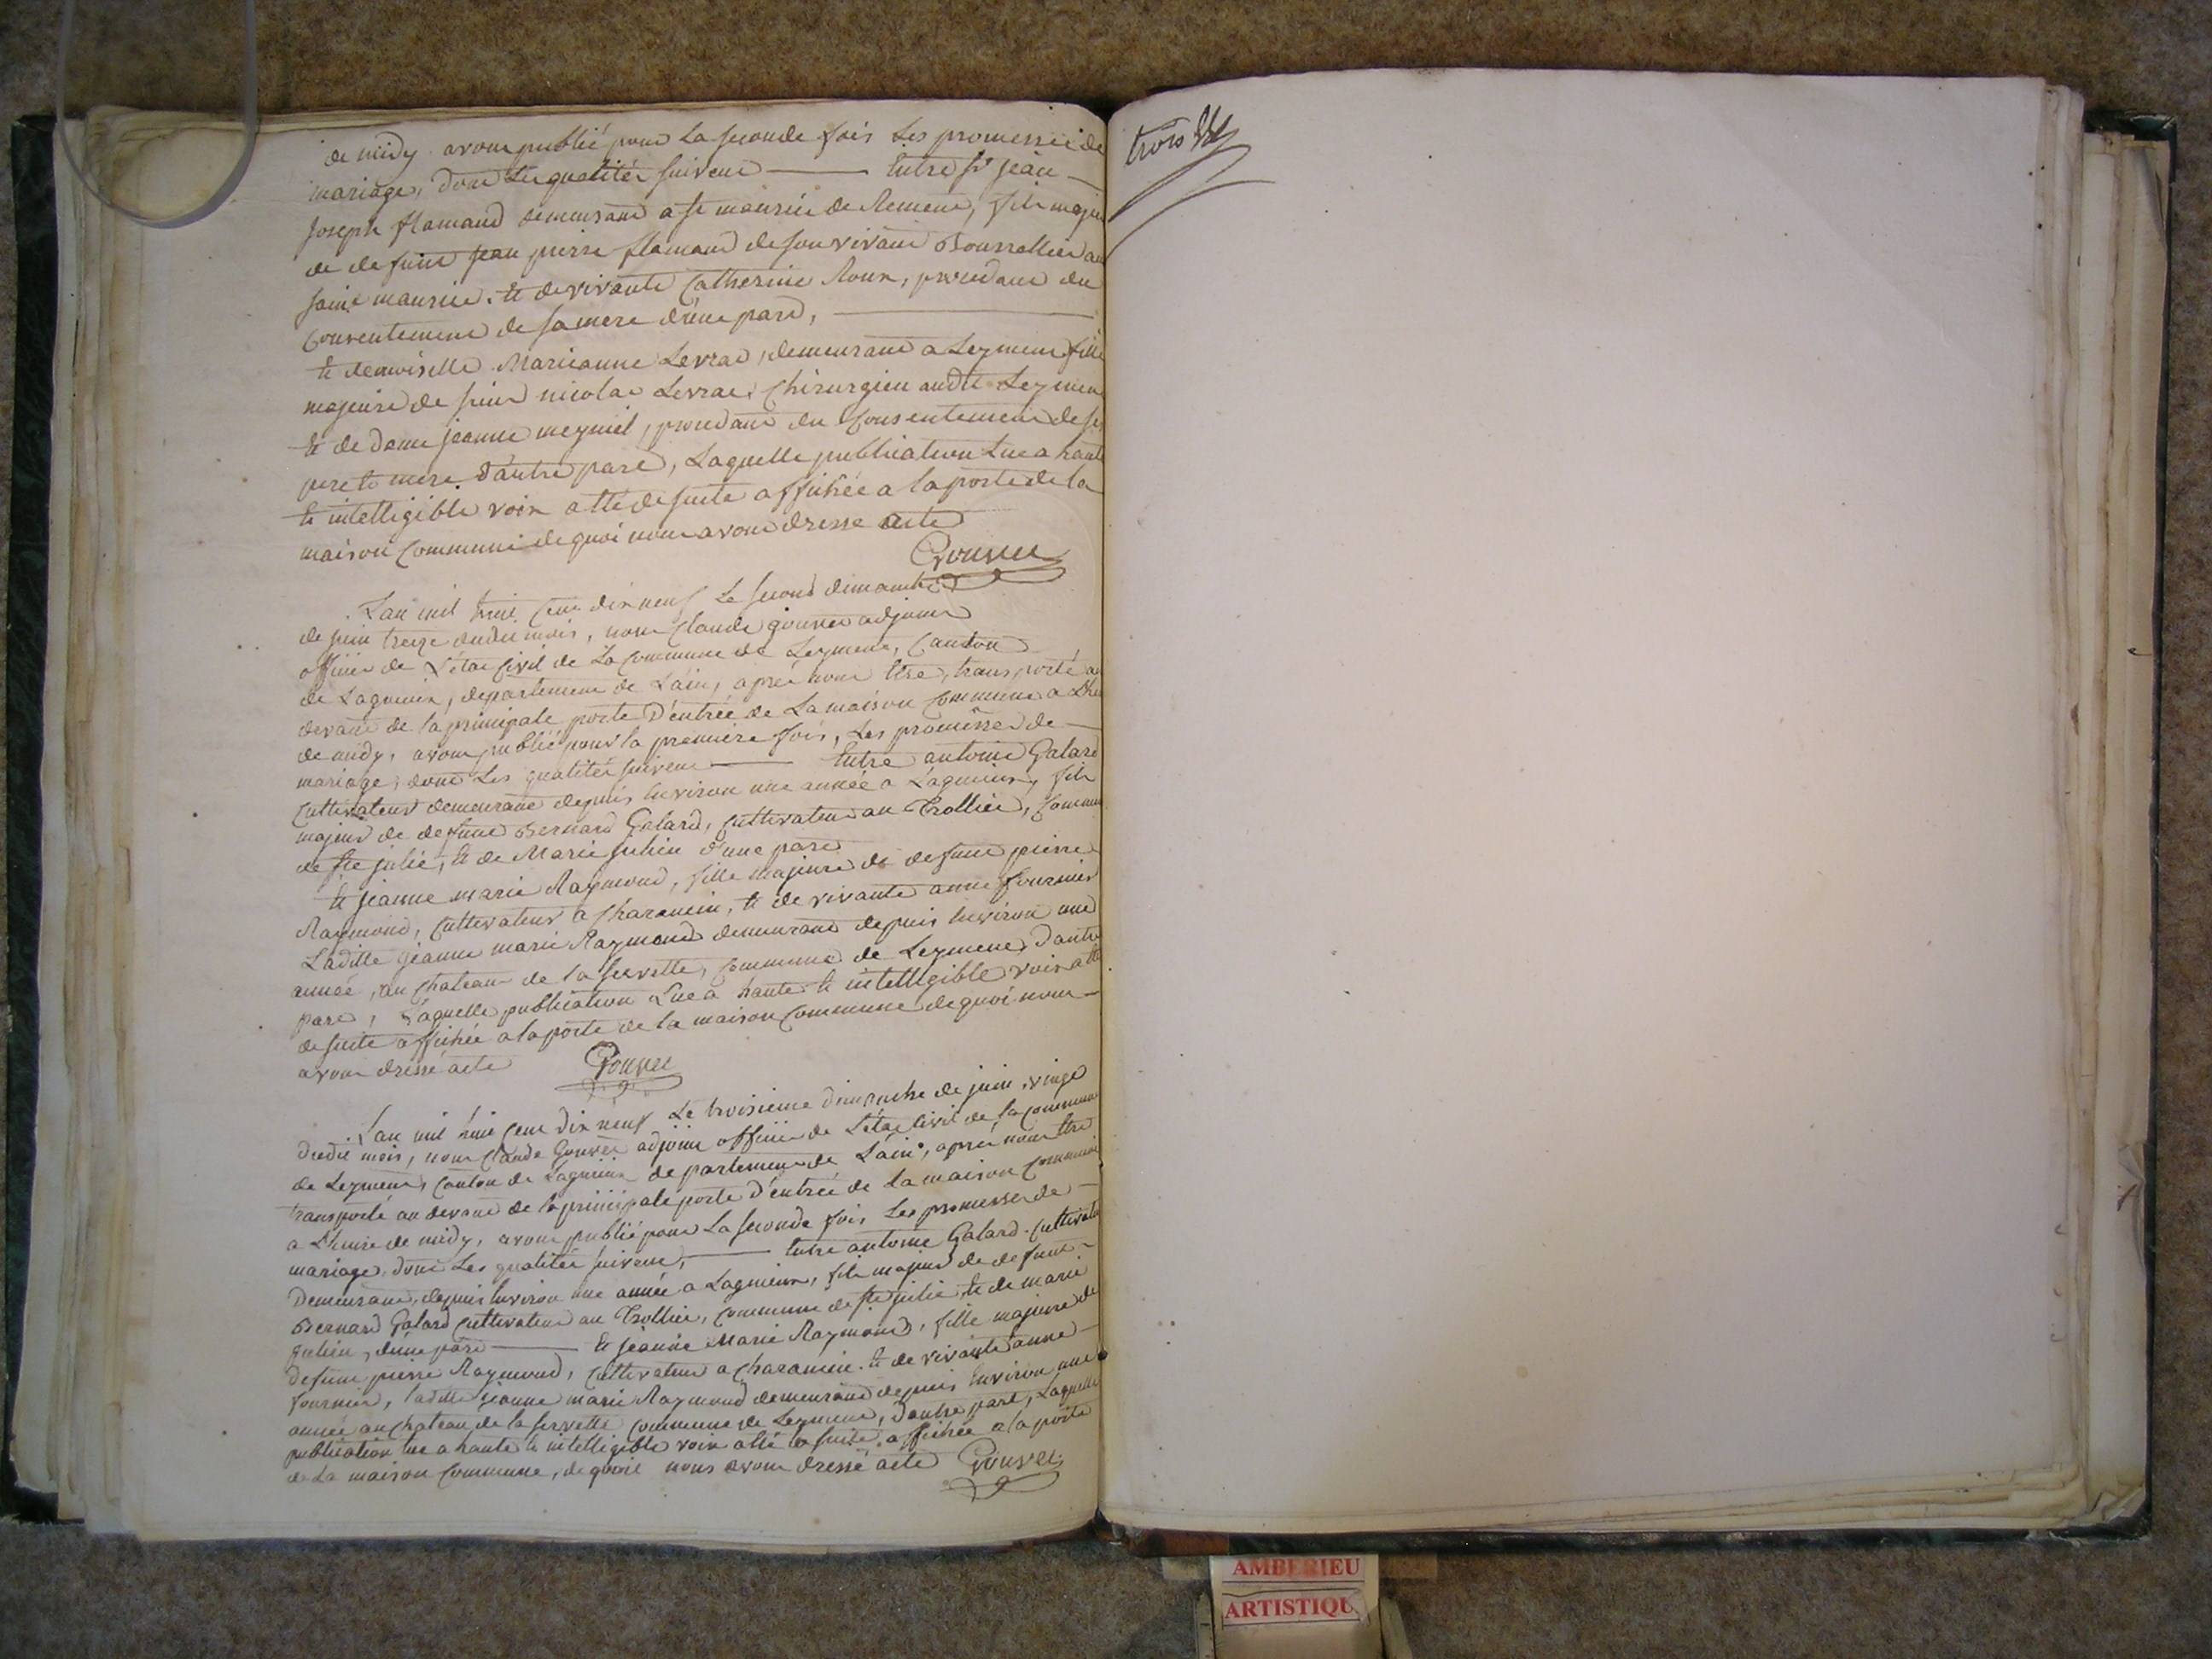 de midy avons publié pour La seconde fois Les promesses de
mariage, dont Les qualités suivent —— Entre Sr jean —
joseph flamand demeurant a st maurice de Remens, fils majeur
de defunt jean pierre flamand de son vivant Bourrellier au
saint maurice. Et de vivante Catherine Roux, procedant du
Consentement de sa mere d'une part, ——
Et demoiselle Marieanne Levrat, demeurant a Leyment fille
majeure de sieur nicolas Levrat, Chirurgien audit Leyment
Et de dame jeanne meyniel, procedant du Consentement de ses
pere Et mere d'autre part, Laquelle publication Lue a haute
Et intelligible voix a Eté de suite affichée a la porte de la
maison Commune de quoi nous avons dressé acte
Gouvet
L'an mil huit Cent dix neuf Le second dimanche
de juin treize dudit mois, nous Claude gouvet adjoint
officier de L'état Civil de La Commune de Leyment, Canton
de Lagnieu, departement de L'ain, après nous Etre transporté au
devant de la principale porte D'entrée de La maison Commune a L'heure
de midy, avons publié pour la premiere fois, Les promesses de —
mariage, dont Les qualités suivent —— Entre antoine Galard
Cultivateur demeurant depuis Environ une année a Lagnieux, fils
majeur de defunt Bernard Galard, Cultivateur au Trollier, Commune
de Ste julie, Et de Marie julien d'une part
Et jeanne marie Raymond, fille majeure de defunt pierre
Raymond, Cultivateur a Charancin, Et de vivante anne fournier
Ladite jeanne marie Raymond demeurant depuis Environ une
année, au Chateau de la servette, Commune de Leyment, d'autre
part, Laquelle publication Lue a haute Et intelligible voix a Eté
de suite affichée a la porte de la maison Commune de quoi nous —
avons dressé acte Gouvet
L'an mil huit Cent dix neuf Le troisieme dimanche de juin, vingt
dudit mois, nous Claude Gouvet adjoint officier de L'état Civil de la Commune
de Leyment, Canton de Lagnieux departement de L'ain, après nous Etre
transporté au devant de la principale porte d'entrée de La maison Commune
a L'heure de midy, avons publié pour La seconde fois Les promesses de —
mariage, dont Les qualités suivent, —— Entre antoine Galard. Cultivateur
Demeurant, depuis Environ une année a Lagnieux, fils majeur de defunt —
Bernard Galard Cultivateur au Trollier, Commune de Ste julie, Et de marie
julien, d'une part —— Et jeanne Marie Raymond, fille majeure de
defunt pierre Raymond, Cultivateur a Charancin. Et de vivante anne —
fournier, ladite jeanne marie Raymond demeurant depuis Environ une
année au Chateau de la servette Commune de Leyment, d'autre part, Laquelle
publication lue a haute Et intelligible voix a Eté de suite, affichée a la porte
de La maison Commune, de quoi nous avons dressé acte Gouvet
trois
AMBERIEU
ARTISTIQU